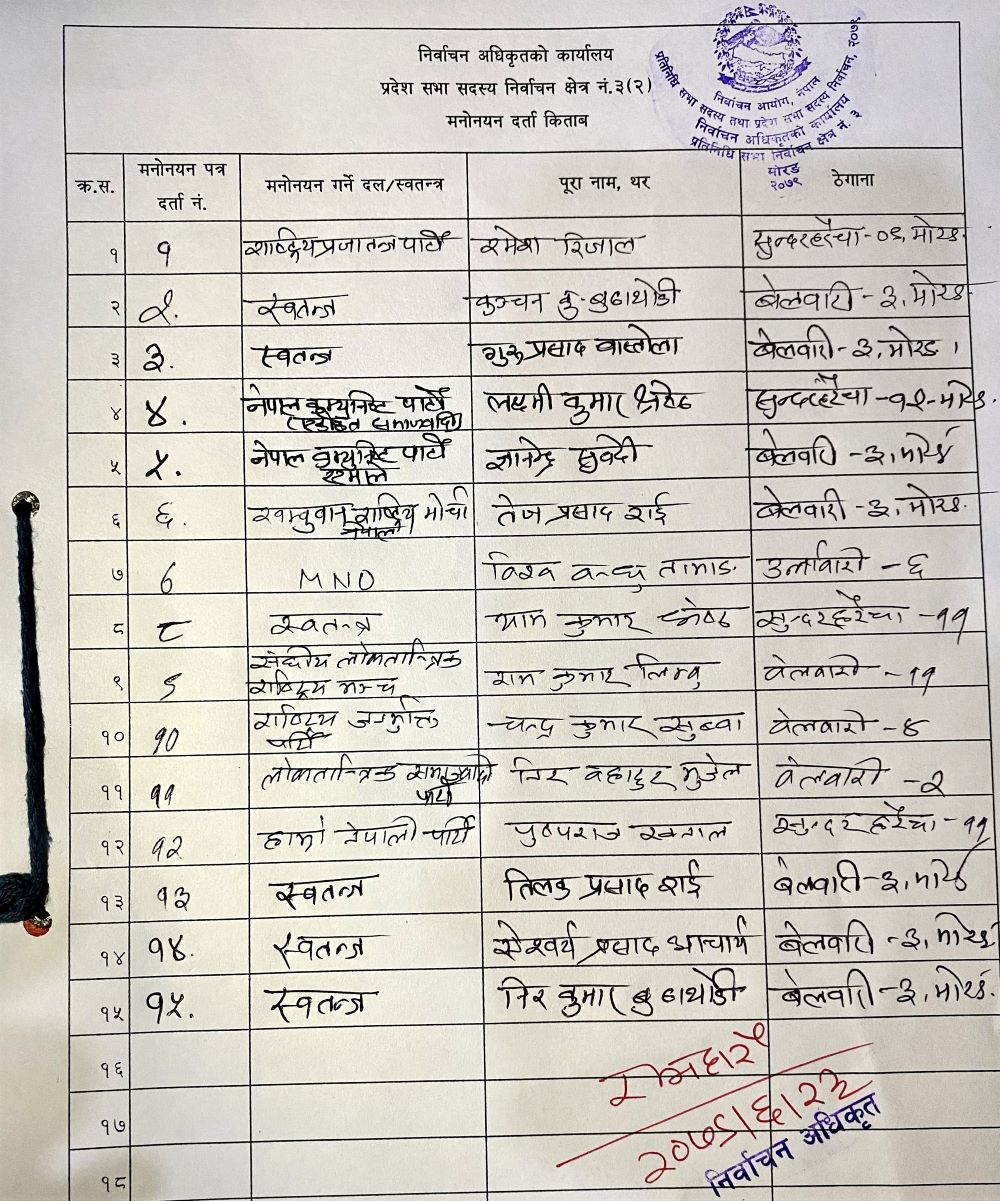 निर्वाचन अधिकृतको कार्यालय
प्रदेश सभा सदस्य निर्वाचन क्षेत्र नं.३(२)
मनोनयन दर्ता किताब
निर्वाचन आयोग, नेपाल
प्रतिनिधि सभा सदस्य तथा प्रदेश सभा सदस्य निर्वाचन, २०७९
निर्वाचन अधिकृतको कार्यालय
प्रतिनिधि सभा निर्वाचन क्षेत्र नं. ३
मोरङ
२०७९
क्र.स. मनोनयन पत्र दर्ता नं. मनोनयन गर्ने दल/स्वतन्त्र पूरा नाम, थर ठेगाना
१ १ राष्ट्रियप्रजातन्त्र पार्टी रमेश रिजाल सुन्दरहरैंचा-०६, मोरङ.
२ २. स्वतन्त्र कञ्चन कु. बुढाथोकी बेलवारी - ३, मोरङ
३ ३. स्वतन्त्र गुरु प्रसाद वास्तोला बेलवारी - ३, मोरङ ।
४ ४. नेपाल कम्युनिष्ट पार्टी (एकीकृत समाजवादी) लक्ष्मी कुमार श्रेष्ठ सुन्दरहरैंचा -१२- मोरङ.
५ ५. नेपाल कम्युनिष्ट पार्टी एमाले ज्ञानेन्द्र सुवेदी बेलवारी - ३, मोरङ
६ ६. खम्वुवान राष्ट्रिय मोर्चा नेपाल तेज प्रसाद राई बेलवारी - ३, मोरङ.
७ ७ MNO विश्व वन्धु तामाङ उर्लावारी - ६
८ ८ स्वतन्त्र याम कुमार श्रेष्ठ सुन्दरहरैंचा - ११
९ ९ संघीय लोकतान्त्रिक राष्ट्रिय मञ्च राम कुमार लिम्वु वेलवारी - ११
१० १० राष्ट्रिय जनमुक्ति पार्टी चन्द्र कुमार सुब्वा वेलवारी - ४
११ ११ लोकतान्त्रिक समाजवादी पार्टी वहादुर वेलवारी - २
१२ १२ हाम्रो नेपाली पार्टी पुष्पराज खनाल सुन्दरहरैंचा - ११
१३ १३ स्वतन्त्र तिलक प्रसाद राई बेलवारी - ३, मोरङ
१४ १४. स्वतन्त्र ऐश्वर्य प्रसाद आचार्य बेलवारी - ३, मोरङ
१५ १५. स्वतन्त्र कुमार बुढाथोकी बेलवारी - ३, मोरङ.
१६
१७
१८
२०७९।६।२३
निर्वाचन अधिकृत